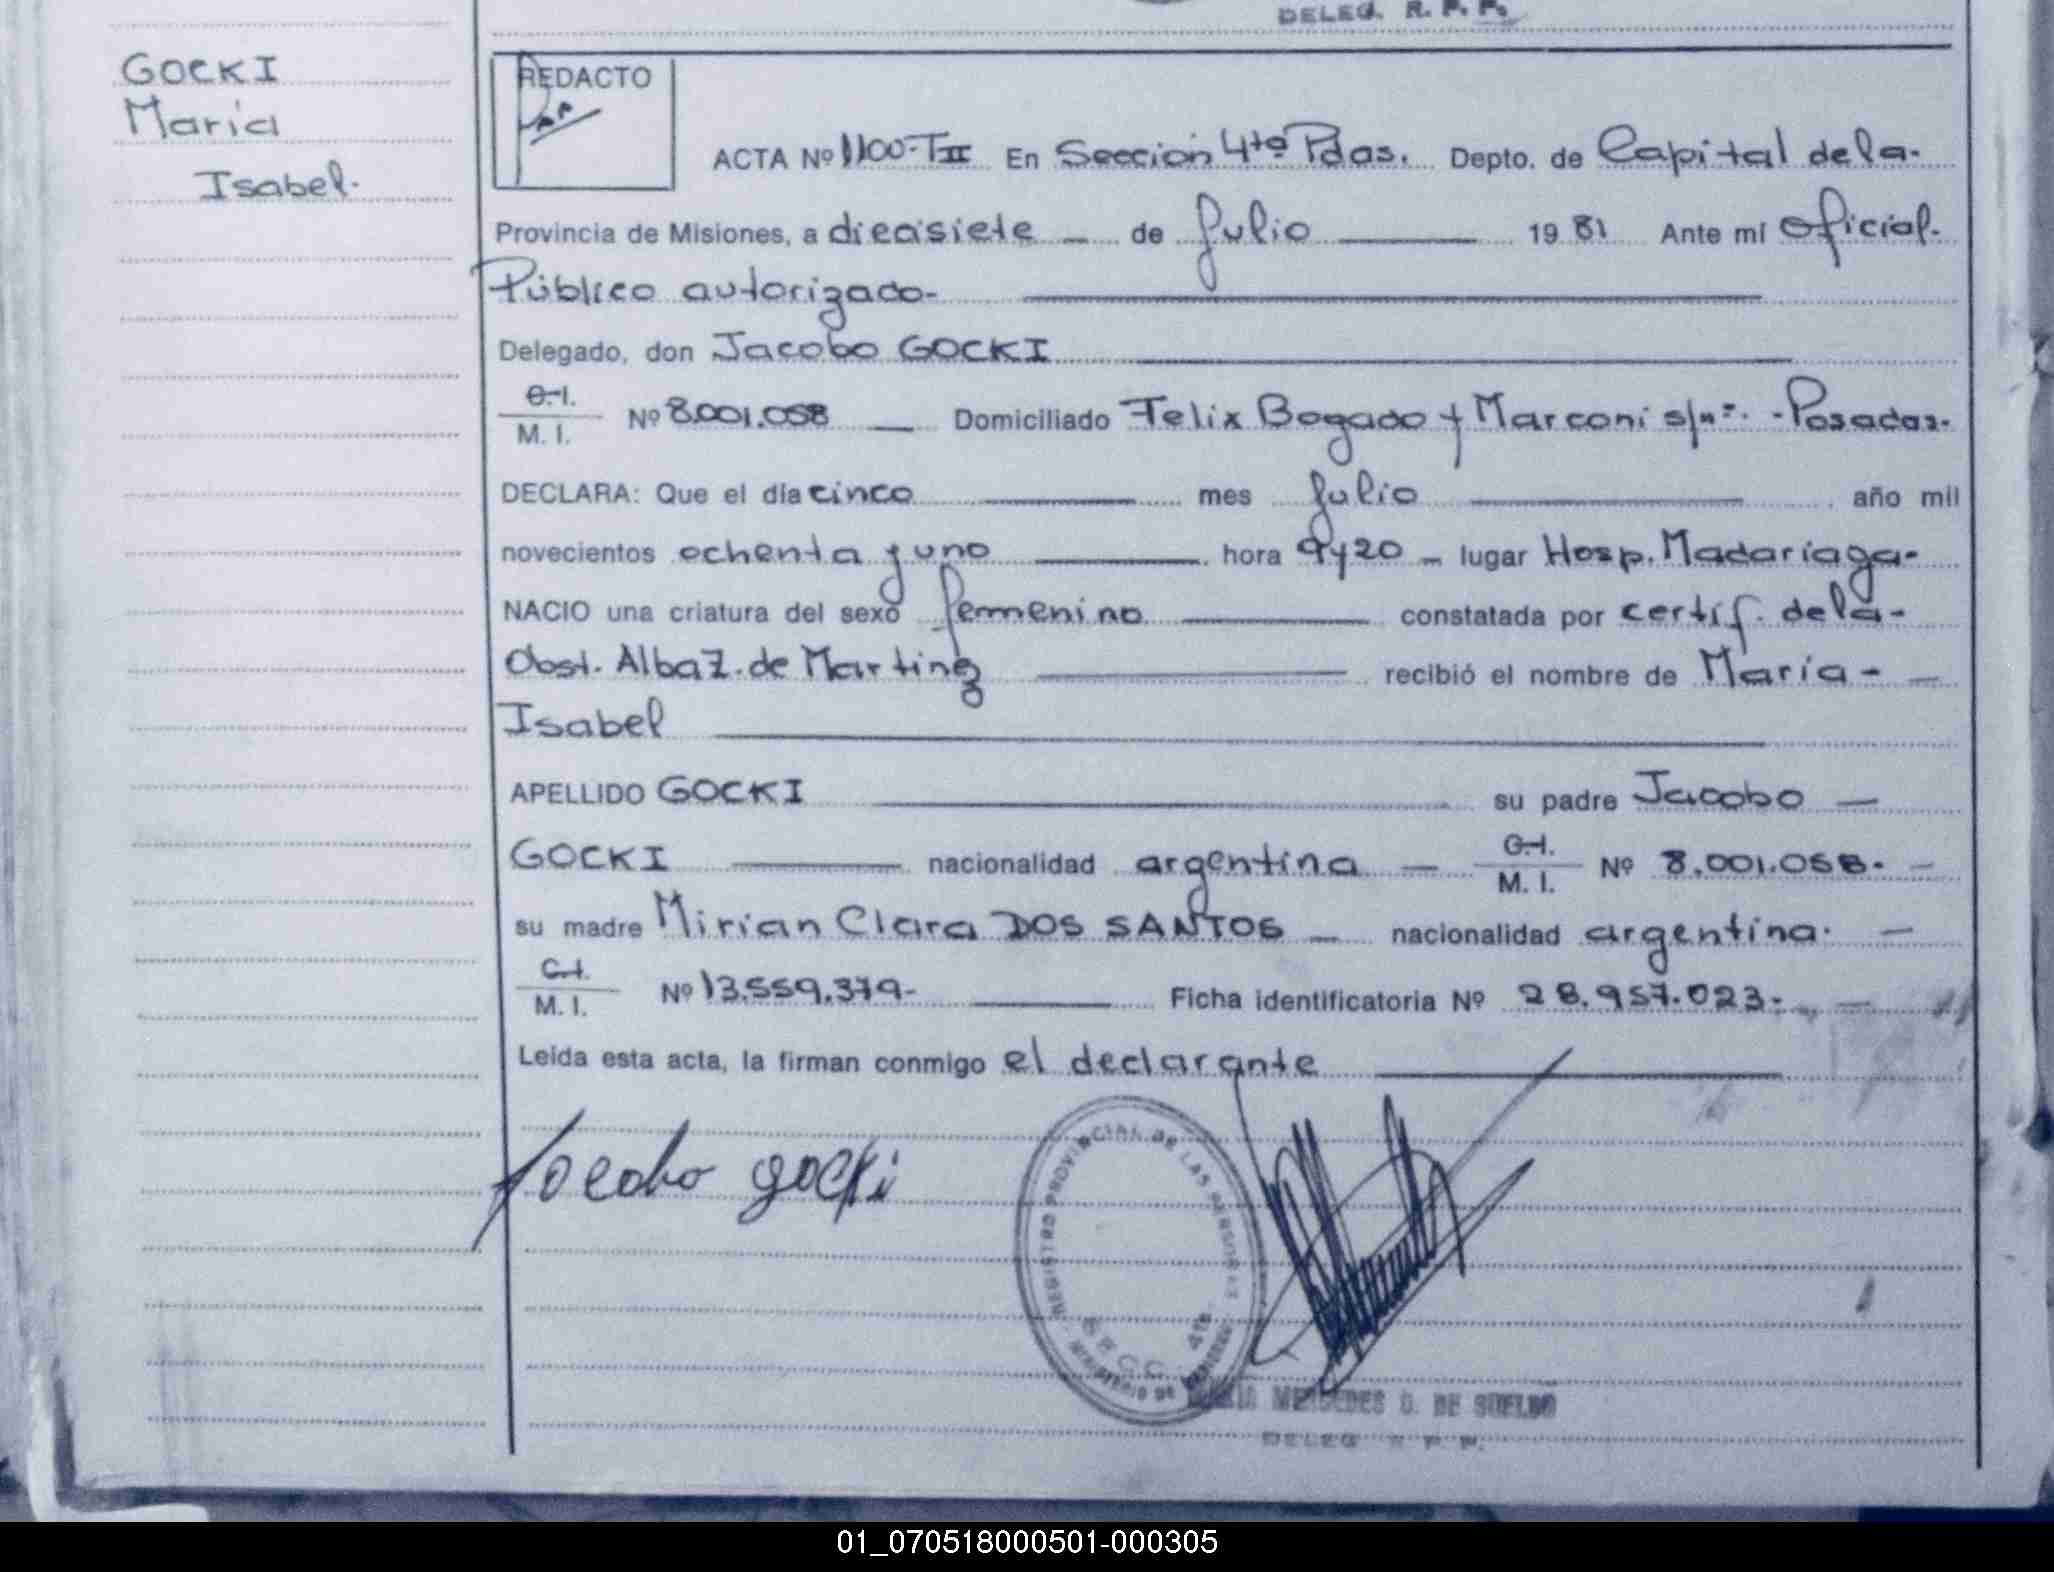 DELEG. R. P. P.
GOCKI
María
Isabel.
REDACTO
ACTA Nº 1100-TII En Sección 4ta Pdas. Depto. de Capital de la-
Provincia de Misiones, a diecisiete de Julio 1981 Ante mí Oficial-
Público autorizado-
Delegado, don Jacobo GOCKI
C.I. M. I. Nº 8.001.058 Domiciliado Felix Bogado y Marconi s/nº. -Posadas.
DECLARA: Que el día cinco mes Julio año mil
novecientos ochenta y uno hora 9y20 lugar Hosp. Madariaga-
NACIO una criatura del sexo femenino constatada por certif. de la-
Obst. Alba Z. de Martinez recibió el nombre de María-
Isabel
APELLIDO GOCKI su padre Jacobo
GOCKI nacionalidad argentina C.I. M. I. Nº 8.001.058.
su madre Mirian Clara DOS SANTOS nacionalidad argentina.
C.I. M. I. Nº 13.559.379- Ficha identificatoria Nº 28.957.023.
Leída esta acta, la firman conmigo el declarante
Jacobo gocki
REGISTRO PROVINCIAL DE LAS PERSONAS
MINISTERIO DE GOBIERNO
4ta
MERCEDES G. DE SUELDO
DELEG R P P.
01_070518000501-000305